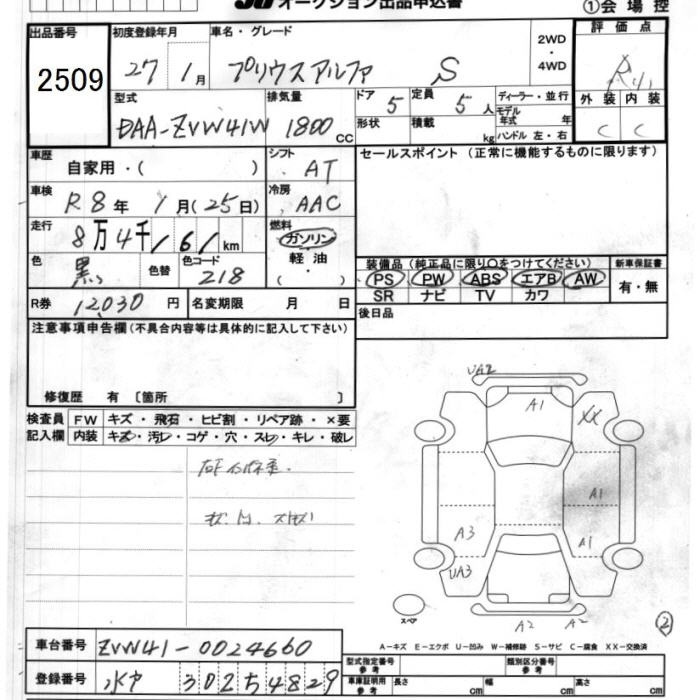 JU オークション出品申込書
①会場控
出品番号
2509
初度登録年月
27 1月
車名・グレード
プリウスアルファ S
2WD
・
4WD
評価点
外装 内装
C C
型式
DAA-ZVW41W
排気量
1800 CC
ドア 5
形状
定員 5人
積載 kg
ディーラー・並行
モデル年式 年
ハンドル 左・右
車歴
自家用・( )
シフト
AT
セールスポイント (正常に機能するものに限ります)
車検
R8年 1月(25日)
冷房
AAC
走行
8万4千161km
燃料
ガソリン
軽油
( )
色
黒
色替
色コード
218
装備品 (純正品に限り○をつけてください)
PS PW ABS エアB AW
SR ナビ TV カワ
新車保証書
有・無
R券 12030円
名変期限 月 日
後日品
注意事項申告欄(不具合内容等は具体的に記入して下さい)
修復歴 有 〔箇所 〕
検査員記入欄
FW キズ・飛石・ヒビ割・リペア跡・×要
内装 キズ・汚レ・コゲ・穴・スレ・キレ・破レ
UA2
A1
XX
A1
A3
A1
UA3
スペア
A2 A2
②
A-キズ E-エクボ U-凹み W-補修跡 S-サビ C-腐食 XX-交換済
車台番号 ZVW41-0024660
登録番号 水戸 302 54829
型式指定番号 参考
類別区分番号 参考
車庫証明用 参考 長さ cm 幅 cm 高さ cm